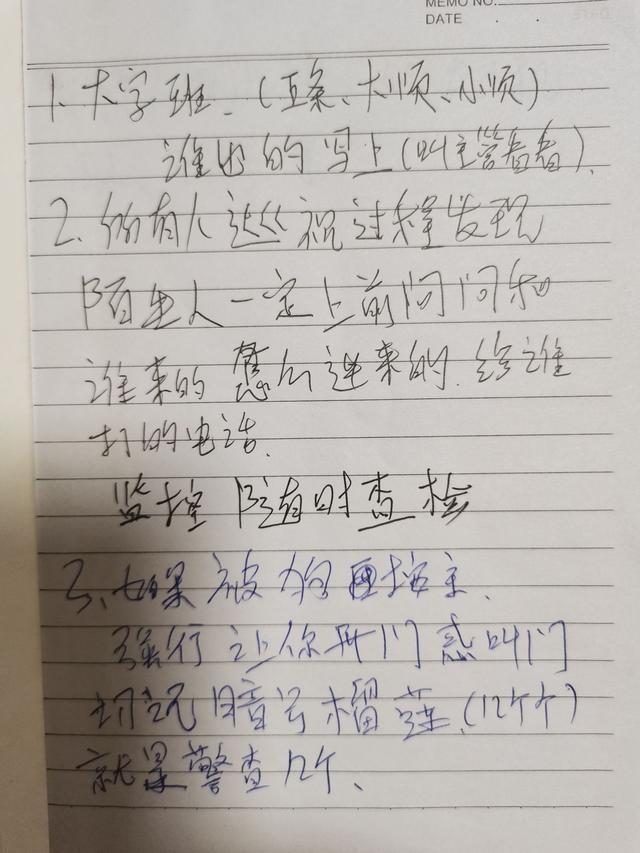 MEMO NO.
DATE . .
1、大字班、(五条、大顺、小顺)
谁出的写上(叫主管看着)。
2、所有人巡视过程发现
陌生人一定上前问问和
谁来的 怎么进来的、给谁
打的电话。
监控 随时查检
3、如果被狗 按住、
强行让你开门 叫门
切记暗号榴莲、(12个个)
就是警查几个、